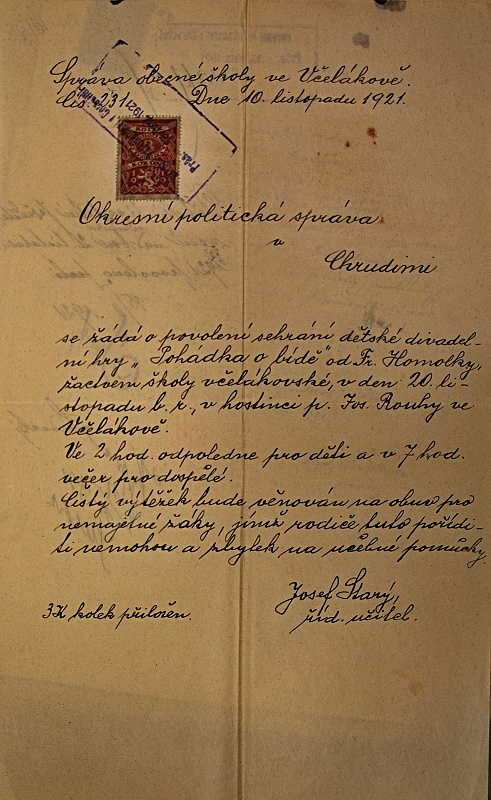 Správa obecné školy ve Včelákově.
Čís. 231. Dne 10. listopadu 1921.
Okresní politická správa
v
Chrudimi
se žádá o povolení sehrání dětské divadel-
ní hry „Pohádka o bídě" od Fr. Homolky,
žactvem školy včelákovské, v den 20. li-
stopadu b. r., v hostinci p. Jos. Rouhy ve
Včelákově.
Ve 2 hod. odpoledne pro děti a v 7 hod.
večer pro dospělé.
Čistý výtěžek bude věnován na obuv pro
nemajetné žáky, jimž rodiče tuto pořídi-
ti nemohou a zbytek na učebné pomůcky.
Josef Starý,
říd. učitel.
3K kolek přiložen.